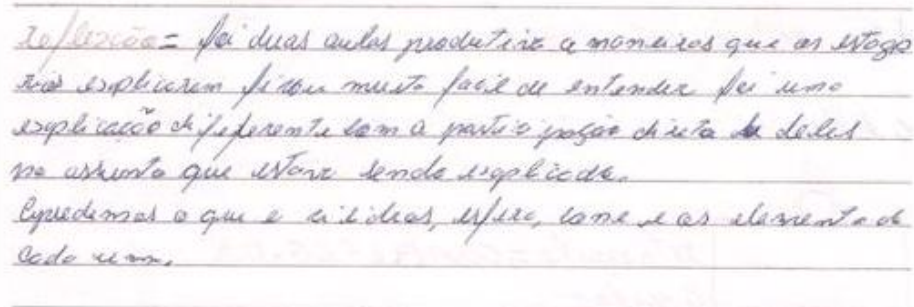 Reflexão = foi duas aulas produtiva a maneiras que as estaga
rias explicaram ficou muito facil de entender foi uma
explicação diferente com a partic ipação direta de deles
no assunto que estava sendo explicado.
Aprendemos o que e cilidros, esfera, cone e os elemento de
cada um.